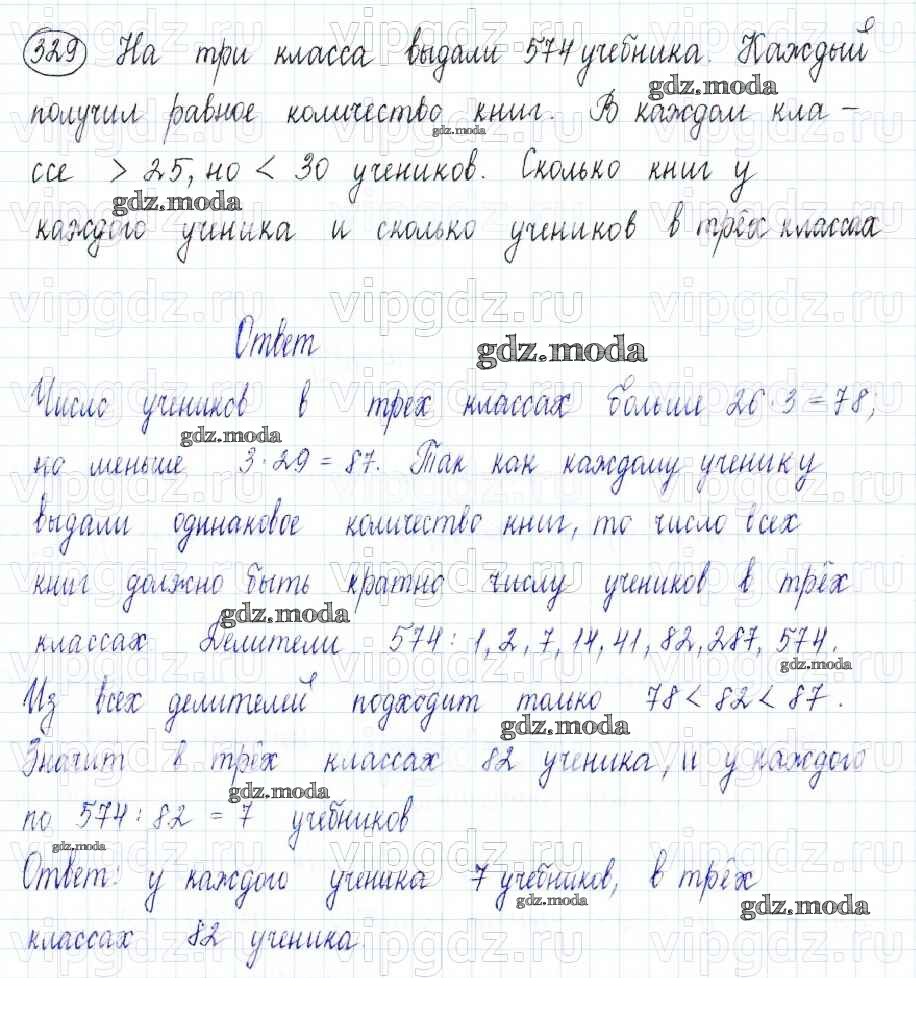 329 На три класса выдали 574 учебника. Каждый
получил равное количество книг. В каждом кла -
ссе > 25, но < 30 учеников. Сколько книг у
каждого ученика и сколько учеников в трёх классах
Ответ
Число учеников в трех классах больше 26 · 3 = 78;
но меньше 3 · 29 = 87. Так как каждому ученику
выдали одинаковое количество книг, то число всех
книг должно быть кратно числу учеников в трёх
классах Делители 574 : 1, 2, 7, 14, 41, 82, 287, 574.
Из всех делителей подходит только 78 < 82 < 87.
Значит в трёх классах 82 ученика, и у каждого
по 574 : 82 = 7 учебников
Ответ: у каждого ученика 7 учебников, в трёх
классах 82 ученика.
gdz.moda
vipgdz.ru